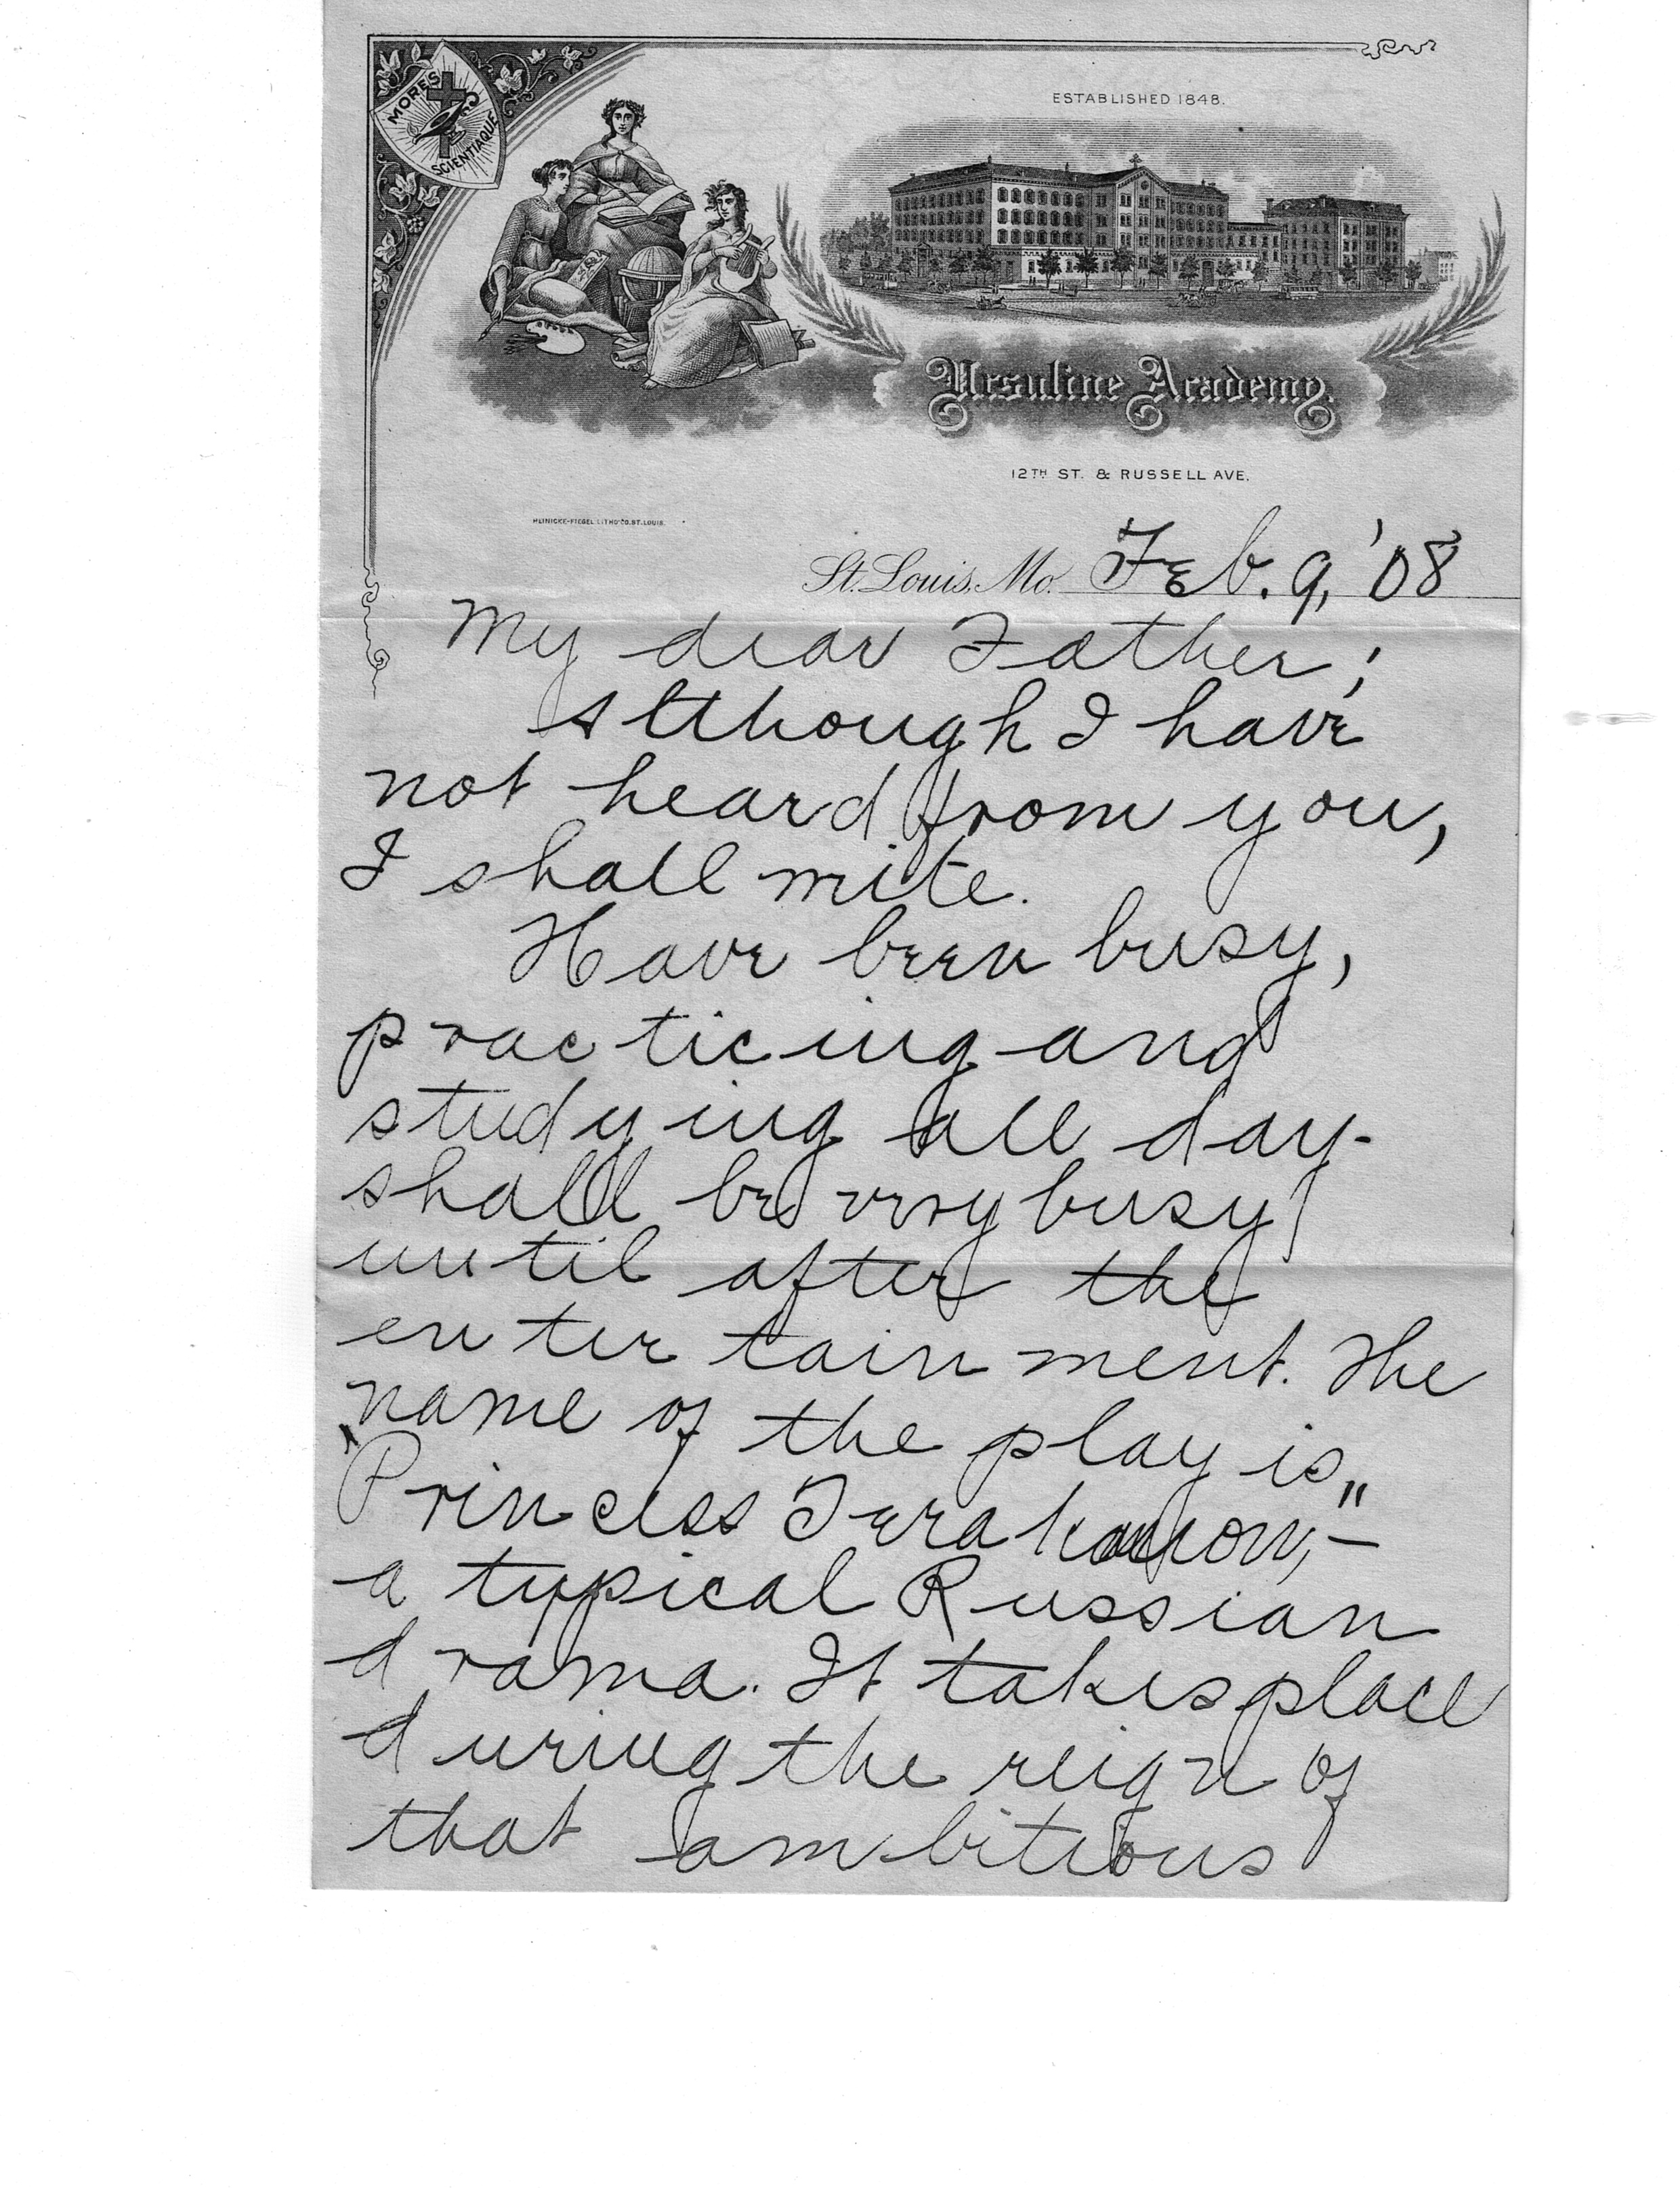 MORES
SCIENTIAQUE
ESTABLISHED 1848.
Ursuline Academy.
12TH ST. & RUSSELL AVE.
HEINICKE-FIEGEL LITHO CO. ST. LOUIS.
St. Louis, Mo. Feb. 9, '08
My dear Father;
Although I have
not heard from you,
I shall write.
Have been busy,
practicing and
studying all day-
shall be very busy
until after the
entertainment. The
name of the play is
"Princess
a typical Russian
drama. It takes place
during the reign of
that ambitious